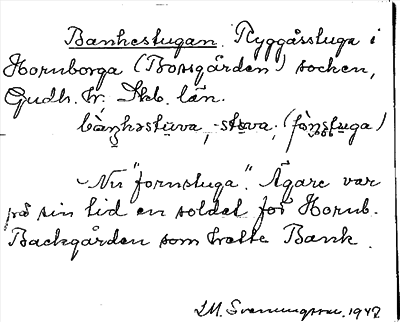 Banhestugan. Ryggåsstuga i
Hornborga (Bossgården) socken,
Gudh. hr, Skb. län.
bàŋhəstuva, -stəva; (fò̱nstuga)
Nu "fornstuga". Ägare var
på sin tid en soldat för Hornb.
Backgården som hette Bank.
I.M. Svenningsson. 1942